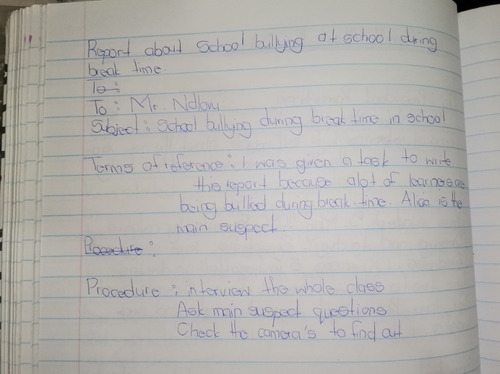 Report about School bullying at school during
break time
To:
To: Mr. Ndlovu
Subject: School bullying during break time in school
Terms of reference: I was given a task to write
this report because alot of learners are
being bullied during break time. Also is the
main suspect.
Procedure:
Procedure: interview the whole class
Ask main suspect questions
Check the camera's to find out